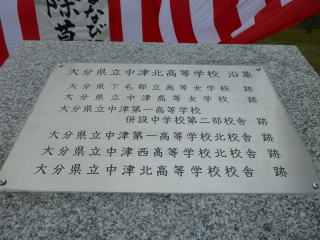 まなび
除幕
大分県立中津北高等学校 沿革
大分県下毛郡立高等女学校 跡
大分県立中津高等女学校 跡
大分県立中津第一高等学校
併設中学校第二部校舎 跡
大分県立中津第一高等学校北校舎 跡
大分県立中津西高等学校北校舎 跡
大分県立中津北高等学校校舎 跡